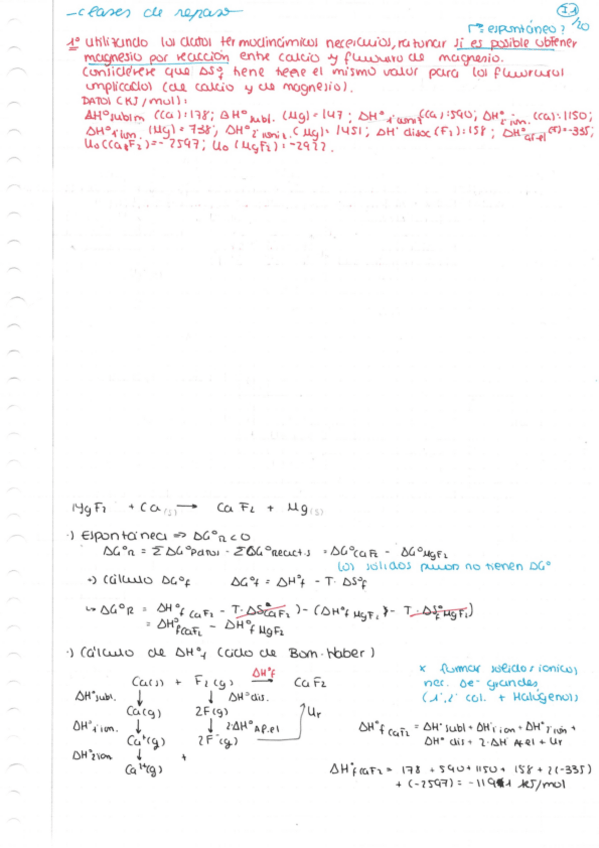 - clases de repaso
1.1
/20
rº espontáneo?
1º Utilizando los datos termodinámicos necesarios, razonar si es posible obtener
magnesio por reacción entre calcio y fluoruro de magnesio.
Considérese que ΔSºf tiene tiene el mismo valor para los fluoruros
implicados (de calcio y de magnesio).
DATOS (KJ/mol):
ΔHº sublim (Ca): 178; ΔHº subl. (Mg) = 147; ΔHº 1ªioniz (Ca): 590; ΔHº 2ª ion. (Ca): 1150;
ΔHº 1ªion. (Mg) = 738; ΔHº 2ªioniz. (Mg) = 1451; ΔHº disoc (F2): 158; ΔHº af-el (F) = -335;
U0 (CaF2) = -2597; U0 (MgF2): -2922.
MgF2 + Ca(s) → CaF2 + Mg(s)
·) Espontánea ⇒ ΔGºR < 0
ΔGºR = ΣΔGºprod - ΣΔGºReact.s = ΔGºCaF2 - ΔGºMgF2
los sólidos puros no tienen ΔGº
→) Cálculo ΔGºf ΔGºf = ΔHºf - T · ΔSºf
↳ ΔGºR = ΔHºf CaF2 - T·ΔSºCaF2) - (ΔHºf MgF2) - T·ΔSºfMgF2)
= ΔHºfCaF2 - ΔHºf MgF2
·) Cálculo de ΔHºf (Ciclo de Born-Haber)
Ca(s) + F2(g) ΔHºf → CaF2
ΔHºsubl. ↓ ↓ ΔHºdis.
Ca(g) 2F(g) Ur
ΔHº1ion. ↓ ↓ 2·ΔHºAf.el
Ca⁺(g) 2F⁻(g)
ΔHº2ion ↓ +
Ca²⁺(g)
* formar sólidos iónicos,
nec. de grandes
(1ª, 2ª col. + Halógenos)
ΔHºf CaF2 = ΔHºsubl + ΔHº1ion + ΔHº2ion +
ΔHºdis + 2·ΔHº Af.el + Ur
ΔHºfCaF2 = 178 + 590 + 1150 + 158 + 2(-335)
+ (-2597) = -1191 KJ/mol